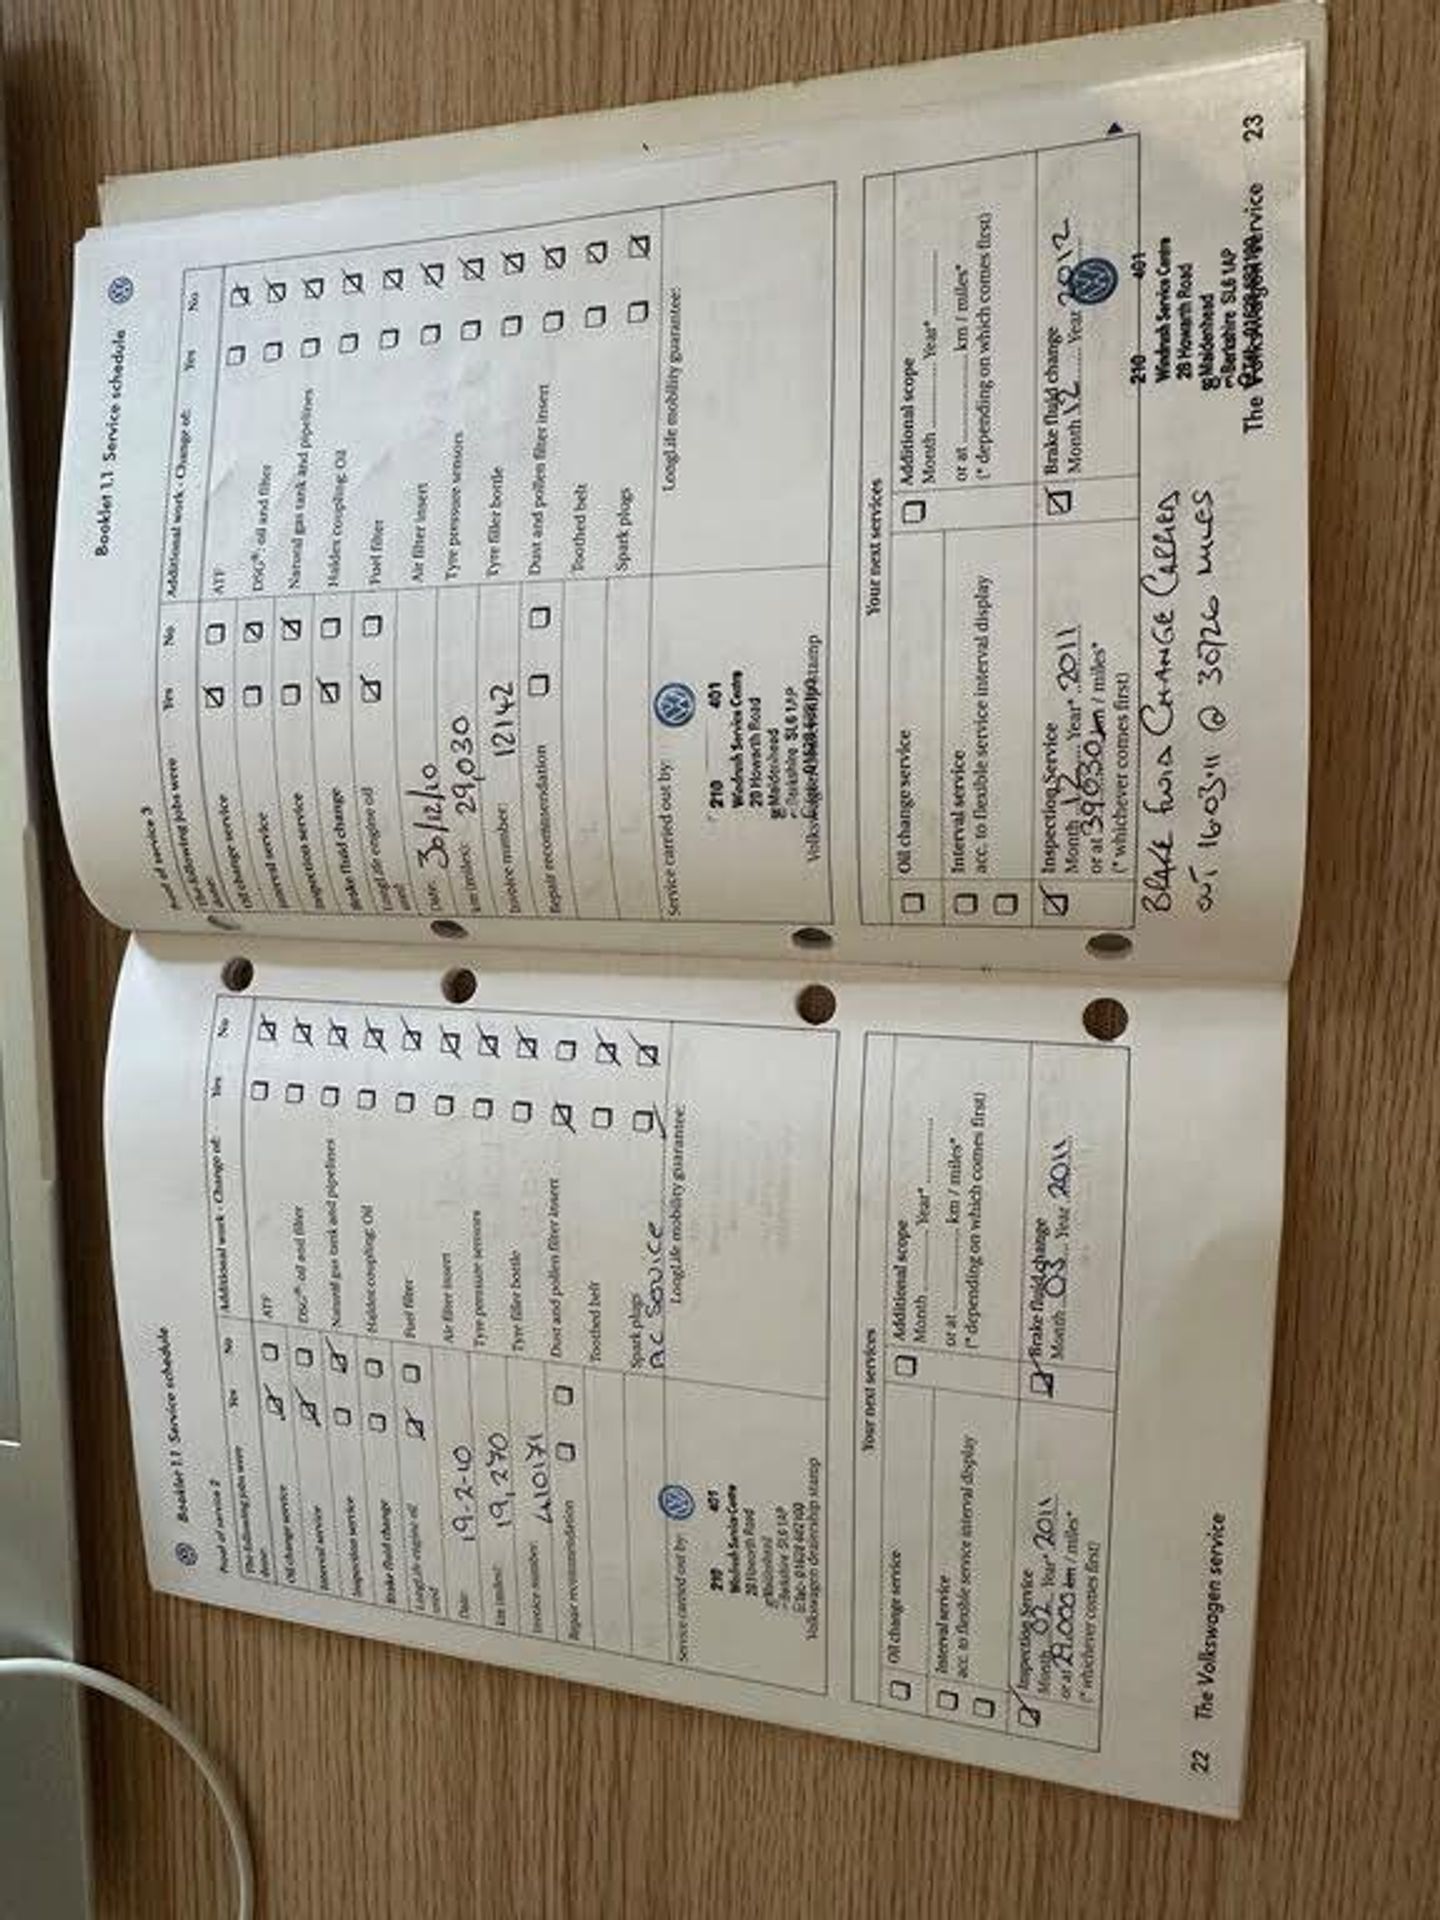 Booklet 1.1 Service schedule
Proof of service 2
The following jobs were done:
Yes
No
Additional work - Change of:
Yes
No
Oil change service
Interval service
Inspection service
Brake fluid change
LongLife engine oil used
Date: 19-2-10
km (miles): 19,270
Invoice number: 410171
Repair recommendation
ATF
DSG®: oil and filter
Natural gas tank and pipelines
Haldex coupling: Oil
Fuel filter
Air filter insert
Tyre pressure sensors
Tyre filler bottle
Dust and pollen filter insert
Toothed belt
Spark plugs
AC Service
Service carried out by:
210 401
Windrush Service Centre
28 Howarth Road
Maidenhead
Berkshire SL6 1AP
Volkswagen dealership stamp
LongLife mobility guarantee:
Your next services
Oil change service
Interval service
acc. to flexible service interval display
Inspection Service
Month 02 Year* 2011
or at 29,000 km / miles*
(* whichever comes first)
Additional scope
Month Year*
or at km / miles*
(* depending on which comes first)
Brake fluid change
Month 03 Year 2011
22 The Volkswagen service
Booklet 1.1 Service schedule
Proof of service 3
The following jobs were done:
Yes
No
Additional work - Change of:
Yes
No
Oil change service
Interval service
Inspection service
Brake fluid change
LongLife engine oil used
Date: 30/12/10
km (miles): 29,030
Invoice number: 12142
Repair recommendation
ATF
DSG®: oil and filter
Natural gas tank and pipelines
Haldex coupling: Oil
Fuel filter
Air filter insert
Tyre pressure sensors
Tyre filler bottle
Dust and pollen filter insert
Toothed belt
Spark plugs
Service carried out by:
210 401
Windrush Service Centre
28 Howarth Road
Maidenhead
Berkshire SL6 1AP
LongLife mobility guarantee:
Your next services
Oil change service
Interval service
acc. to flexible service interval display
Inspection Service
Month 12 Year* 2011
or at 39030 km / miles*
(* whichever comes first)
Additional scope
Month Year*
or at km / miles*
(* depending on which comes first)
Brake fluid change
Month 12 Year 2012
BRAKE FLUID CHANGE CARRIED
OUT 16.03.11 @ 30726 MILES
210 401
Windrush Service Centre
28 Howarth Road
Maidenhead
Berkshire SL6 1AP
The Volkswagen service 23